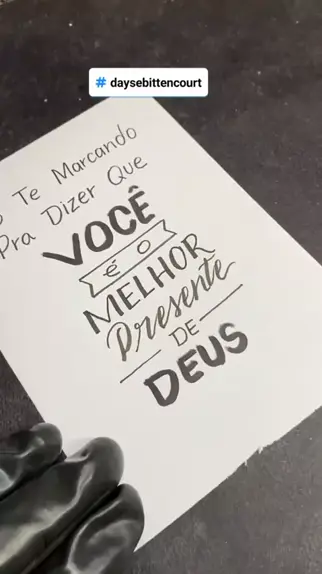 # daysebittencourt
Te Marcando
Pra Dizer Que
VOCÊ
é O
MELHOR
Presente
DE
DEUS